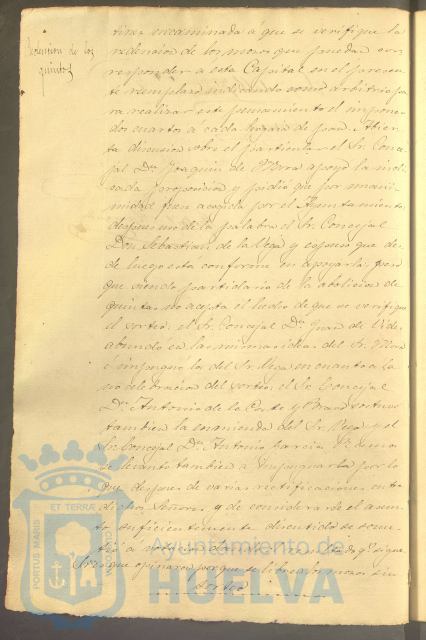 Redencion de los
quintos
tiva encaminada á que se verifique la
redencion de los mozos que puedan cor-
responder á esta Capital en el presen-
te reemplazo indicando como arbitrio pa
ra realizar este pensamiento el imponer
dos cuartos a cada hogaza de pan. Abier-
ta discusion sobre el particular el Sr. Conce-
jal Dn. Joaquin de Mora apoyó la indi-
cada proposicion y pidió que por unani-
midad fuera acogida por el Ayuntamiento
despues uso de la palabra el Sr. Concejal
Don Sebastian de la Vega y espuso que des-
de luego está conforme en apoyarla, pero
que siendo partidario de la abolicion de
quintas no acepta el hecho de que se verifique
el sorteo: el Sr. Concejal Dn. Juan de Vides
abundó en las mismas ideas del Sr. Mora
é impugnó las del Sr. Vega en cuanto a la
no celebracion del sorteo, el Sr. Concejal
Dn. Antonio de la Corte y Bravo sostuvo
tambien la enmienda del Sr. Vega y el
Sr. Concejal Dn. Antonio Garcia
se levantó tambien á impugnarla por lo
que despues de varias rectificaciones entre
dichos Señores y de considerarse el asun-
to suficientemente discutido se some-
tió a votacion dando el resultado qe. sigue
Sres. que opinaron porque se libren los mozos sin
sorteo
PORTUS MARIS
ET TERRÆ
CUSTODIA
Ayuntamiento de
HUELVA